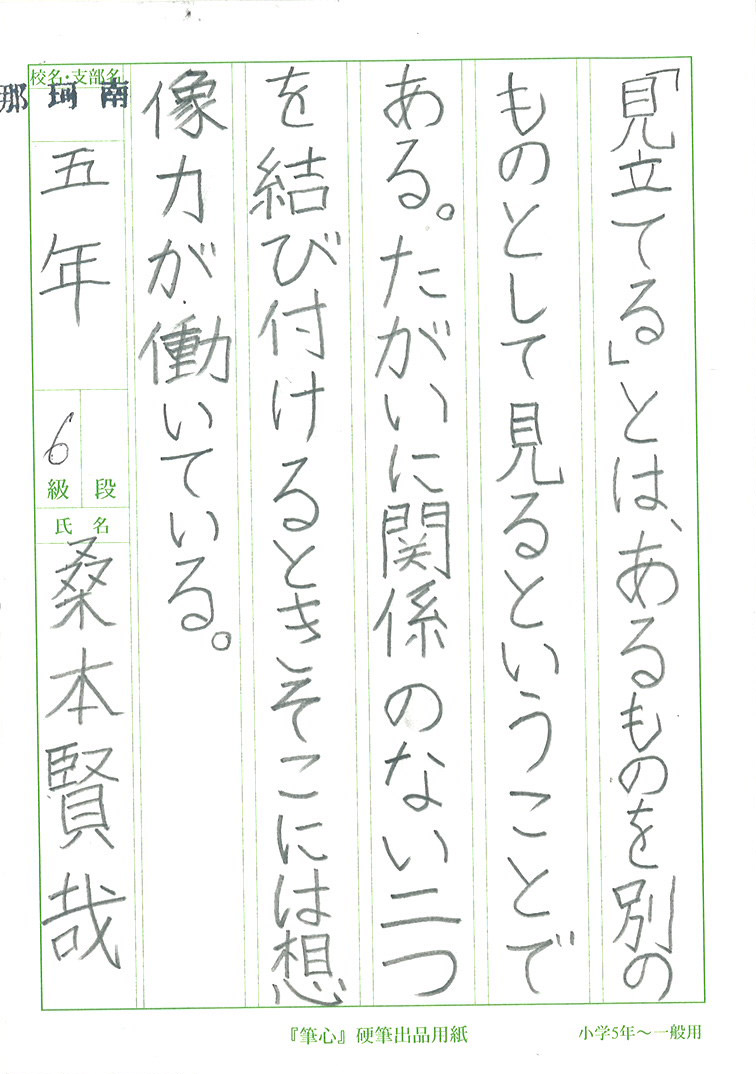 「見立てる」とは、あるものを別の
ものとして見るということで
ある。たがいに関係のない二つ
を結び付けるときそこには想
像力が働いている。
校名・支部名
那珂南
五年
6
級 段
氏名
桑本賢哉
『筆心』硬筆出品用紙
小学5年～一般用